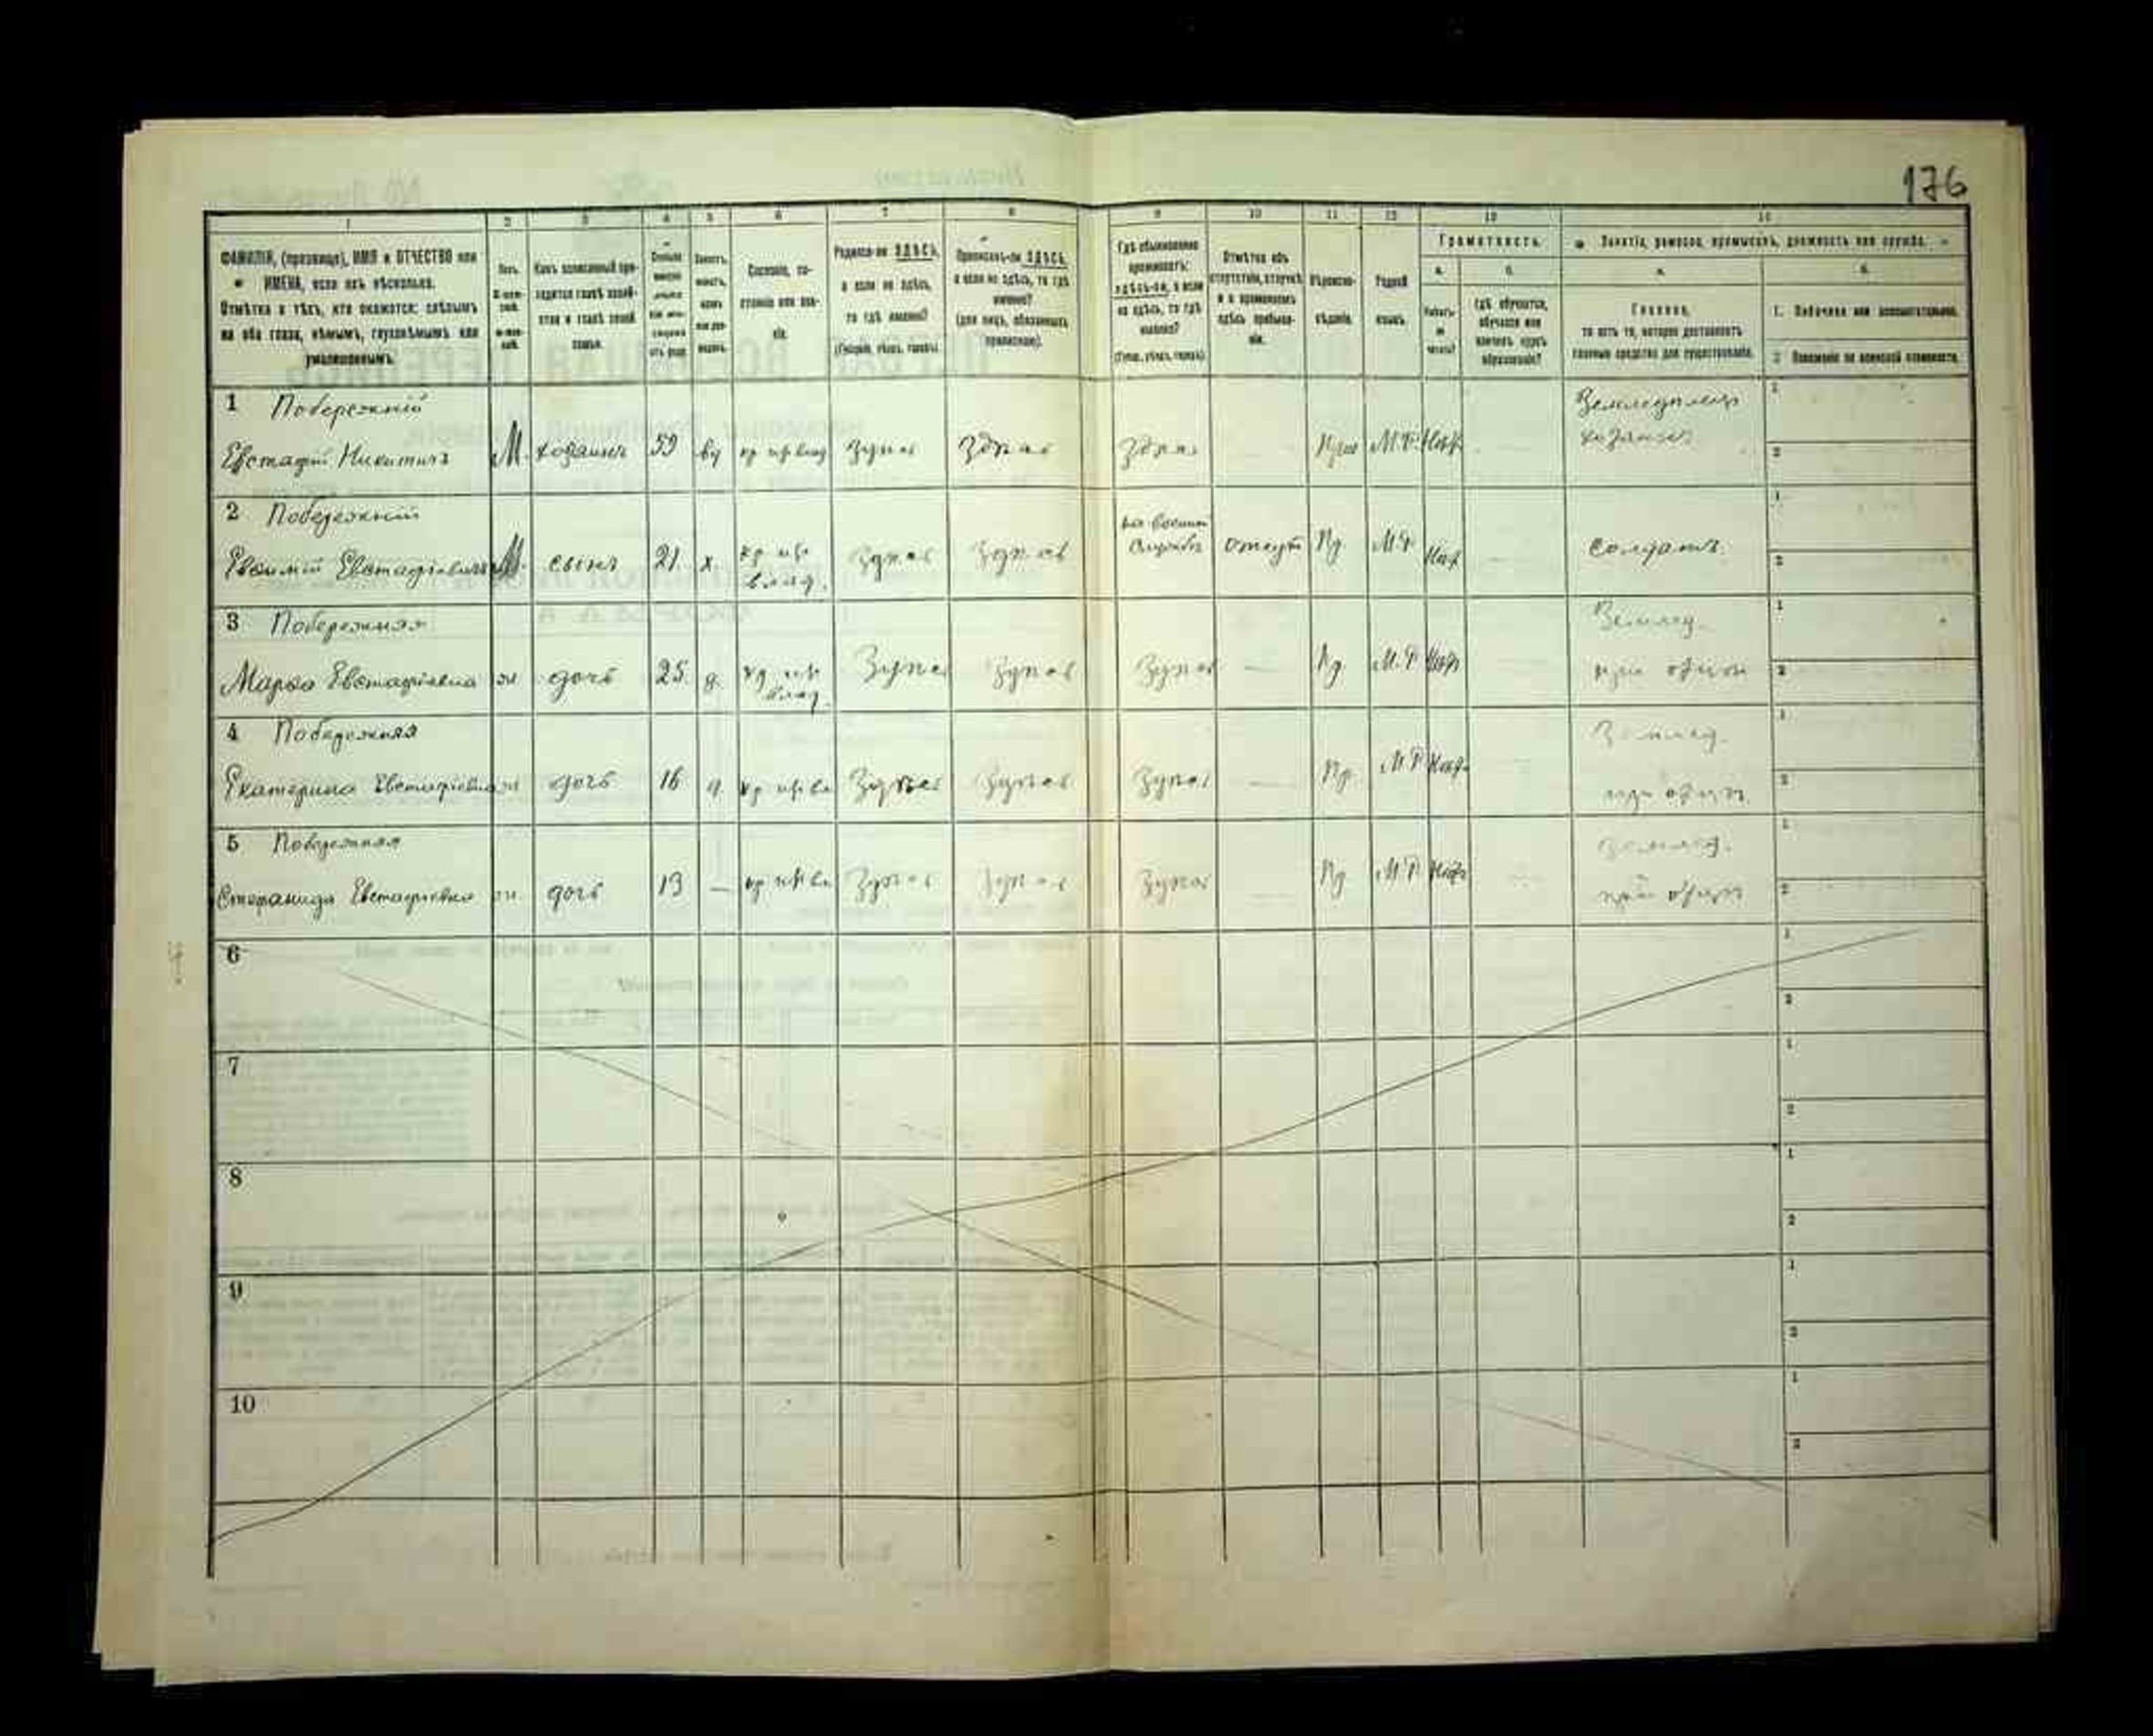 176
1 2 3 4 5 6 7 8 9 10 11 12 13 14
ФАМИЛІЯ, (прозвище), ИМЯ и ОТЧЕСТВО или
ИМЕНА, если ихъ нѣсколько.
Отмѣтка о тѣхъ, кто окажется: слѣпымъ
на оба глаза, нѣмымъ, глухонѣмымъ или
умалишеннымъ.
Полъ.
Какъ записанный при-
ходится главѣ хозяй-
ства и главѣ своей
семьи.
Сословіе, со-
стояніе или зва-
ніе.
Родился-ли ЗДѢСЬ,
а если не здѣсь,
то гдѣ именно?
(Губернія, уѣздъ, городъ).
Приписанъ-ли ЗДѢСЬ,
а если не здѣсь, то гдѣ
именно?
(для лицъ, обязанныхъ
припискою).
Гдѣ обыкновенно
проживаетъ:
здѣсь-ли, а если
не здѣсь, то гдѣ
именно?
(Губер., уѣздъ, городъ).
Отмѣтка объ
отсутствіи, отлучкѣ
и о временномъ
здѣсь пребыва-
ніи.
Вѣроиспо-
вѣданіе.
Родной
языкъ.
Грамотность.
а.
Умѣетъ-
ли
читать?
б.
Гдѣ обучается,
обучался или
кончилъ курсъ
образованія?
Занятіе, ремесло, промыселъ, должность или служба.
а.
Главное,
то есть то, которое доставляетъ
главныя средства для существованія.
б.
1. Побочное или вспомогательное.
2. Положеніе по воинской повинности.
1 Побережній
Евстафій Никитичъ М. хозяинъ 59 вд Здѣсь Здѣсь Здѣсь М.Р.
Земледѣлецъ
хозяинъ
1
2
2 Побережній
Евфимій Евстафіевичъ М. сынъ 21 х. Здѣсь Здѣсь Пр. М.Р. солдатъ
1
2
3 Побережняя
Марфа Евстафіевна ж дочь 25 д. Здѣсь Здѣсь Здѣсь — Пр. М.Р.
Землед.
при отцѣ
1
2
4 Побережняя
Екатерина Евстафіевна ж дочь 16 д. Здѣсь Здѣсь Здѣсь — Пр. М.Р.
Землед.
при отцѣ
1
2
5 Побережняя
Стефанида Евстафіевна ж. дочь 13 — Здѣсь Здѣсь Здѣсь Пр М.Р.
Землед.
при отцѣ
1
2
6
1
2
7
1
2
8
1
2
9
1
2
10
1
2